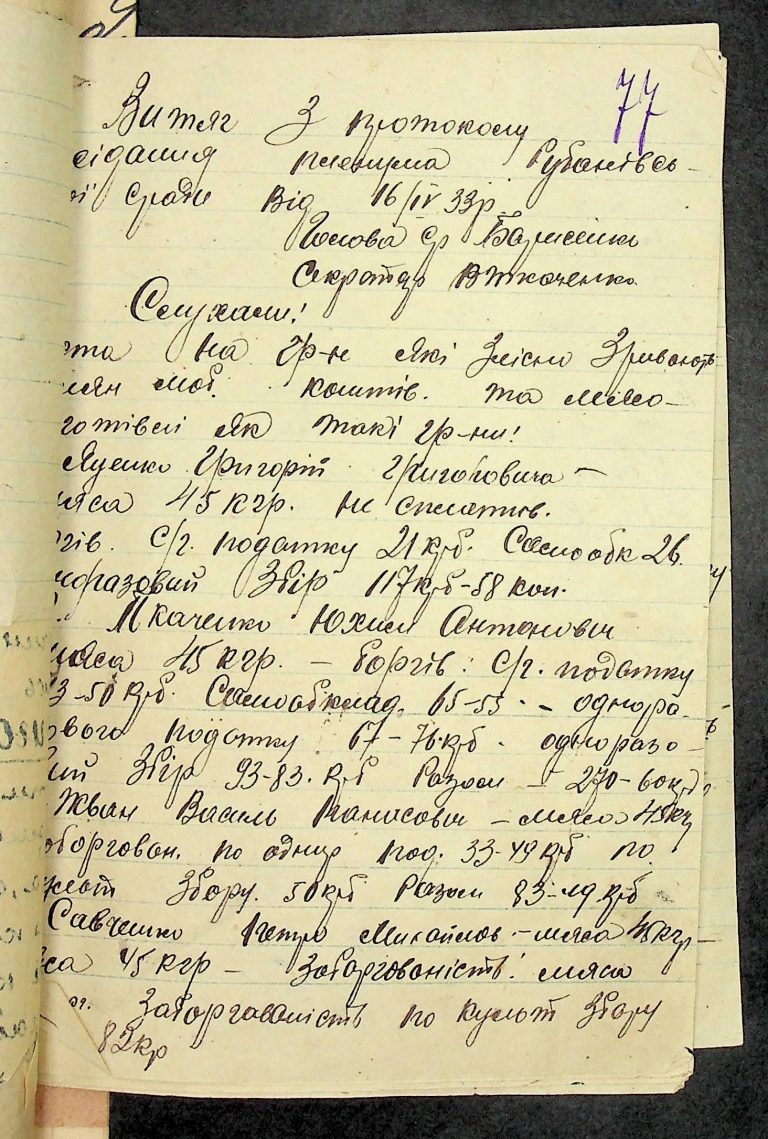 77
Витяг з протоколу
сідання пленума Рубанівсь-
ої с/ради від 16/IV 33р.
Голова с/р
Секретар В Ткаченко
Слухали!
на гр-н які злісно зривають
моб. коштів. та мясо-
готівлі як такі гр-ни!
Яценко Григорій Григоровича –
мяса 45 кгр. не сплатив.
гів. С/г. податку 21 крб. Самообк 26.
норазовий Збір 117 крб-58 коп.
Ткаченко Юхим Антонович
мяса 45 кгр. – боргів: С/г. податку
3-50 крб. Самообклад. 65-55 - однора-
ового податку 67-76 крб. одноразо-
ий Збір 93-83. крб Разом – 270-60 крб
Жван Василь Панасович – мяса 45 кг
оборгован. по однор под. 33-49 крб по
збору. 50 крб Разом 83-49 крб
Савченко Петро Михайлов – мяса 45 кгр –
са 45 кгр – Заборгованість: мяса
Заборгованість по культ збору
82 кр